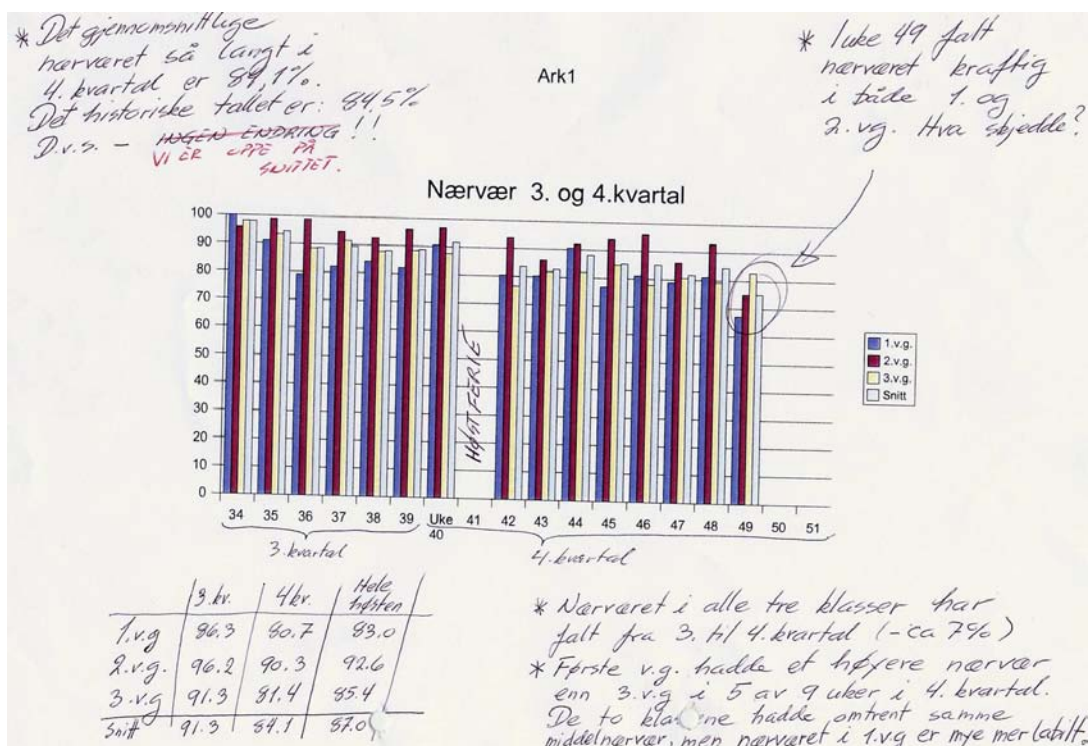 * Det gjennomsnittlige
nærværet så langt i
4. kvartal er 84,1%.
Det historiske tallet er: 84,5%
D.v.s. – INGEN ENDRING !!
VI ER OPPE PÅ
SNITTET.
Ark1
* I uke 49 falt
nærværet kraftig
i både 1. og
2. vg. Hva skjedde?
Nærvær 3. og 4.kvartal
100
90
80
70
60
50
40
30
20
10
0
HØSTFERIE
1.v.g.
2.v.g.
3.v.g.
Snitt
34 35 36 37 38 39 Uke 40 41 42 43 44 45 46 47 48 49 50 51
3. kvartal 4. kvartal
3. kv. 4 kv. Hele høsten
1.v.g 86.3 80.7 83.0
2.v.g. 96.2 90.3 92.6
3.v.g 91.3 81.4 85.4
Snitt 91.3 84.1 87.0
* Nærværet i alle tre klasser har
falt fra 3. til 4. kvartal (-ca 7%)
* Første v.g. hadde et høyere nærvær
enn 3.v.g i 5 av 9 uker i 4. kvartal.
De to klassene hadde omtrent samme
middelnærvær, men nærværet i 1.vg er mye mer labilt.